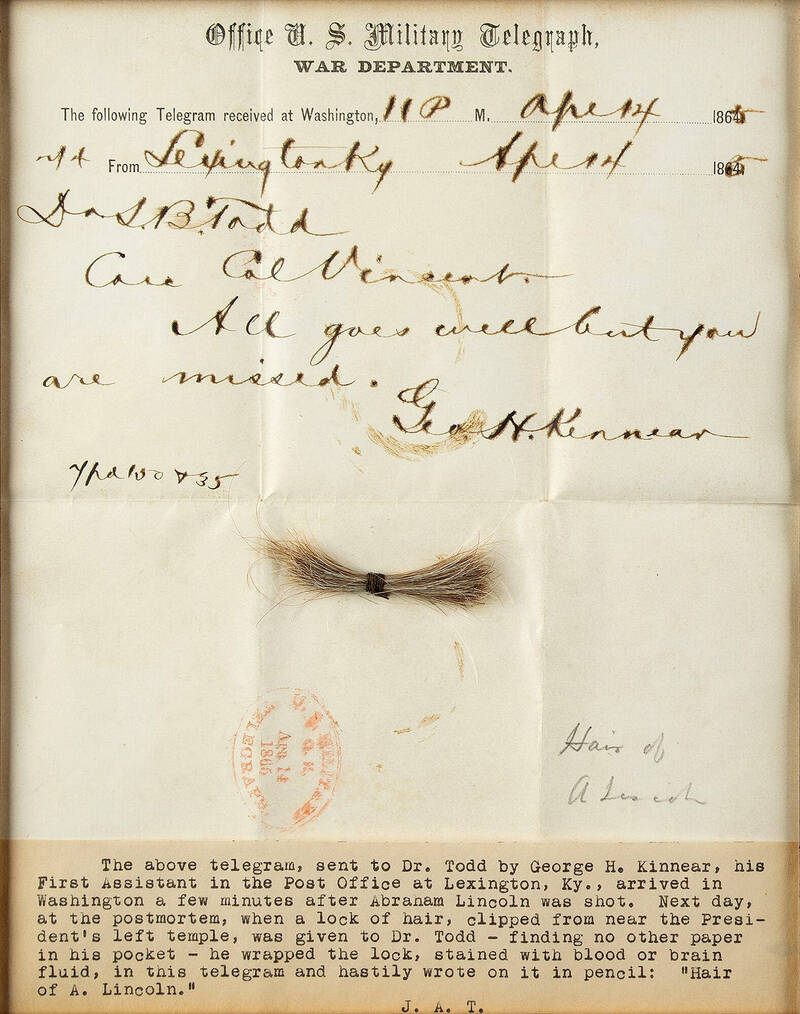 Office U. S. Military Telegraph,
WAR DEPARTMENT.
The following Telegram received at Washington, 11 P M. Apl 14 1865
From Lexington Ky Apl 14 1865
Dr L. B. Todd
Care Col Vincent.
All goes well but you
are missed.
Geo. H. Kinnear
35
U. S. MILITARY
Apr 14
1865
TELEGRAPH
Hair of
A Lincoln
The above telegram, sent to Dr. Todd by George H. Kinnear, his
First Assistant in the Post Office at Lexington, Ky., arrived in
Washington a few minutes after Abraham Lincoln was shot. Next day,
at the postmortem, when a lock of hair, clipped from near the Presi-
dent's left temple, was given to Dr. Todd - finding no other paper
in his pocket - he wrapped the lock, stained with blood or brain
fluid, in this telegram and hastily wrote on it in pencil: "Hair
of A. Lincoln."
J. A. T.